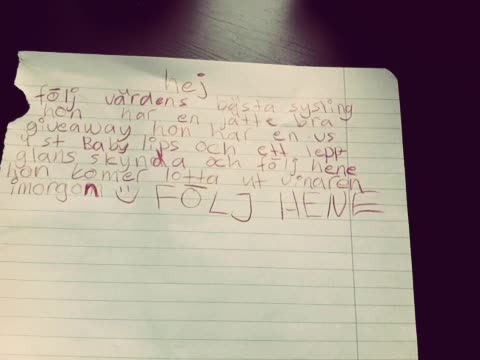 hej
följ världens bästa sysling
hon har en jätte bra
giveaway hon har en us
4 st Baby lips och ett lepp
glans skynda och följ hene
hon komer lotta ut vinaren
imorgon
FÖLJ HENE